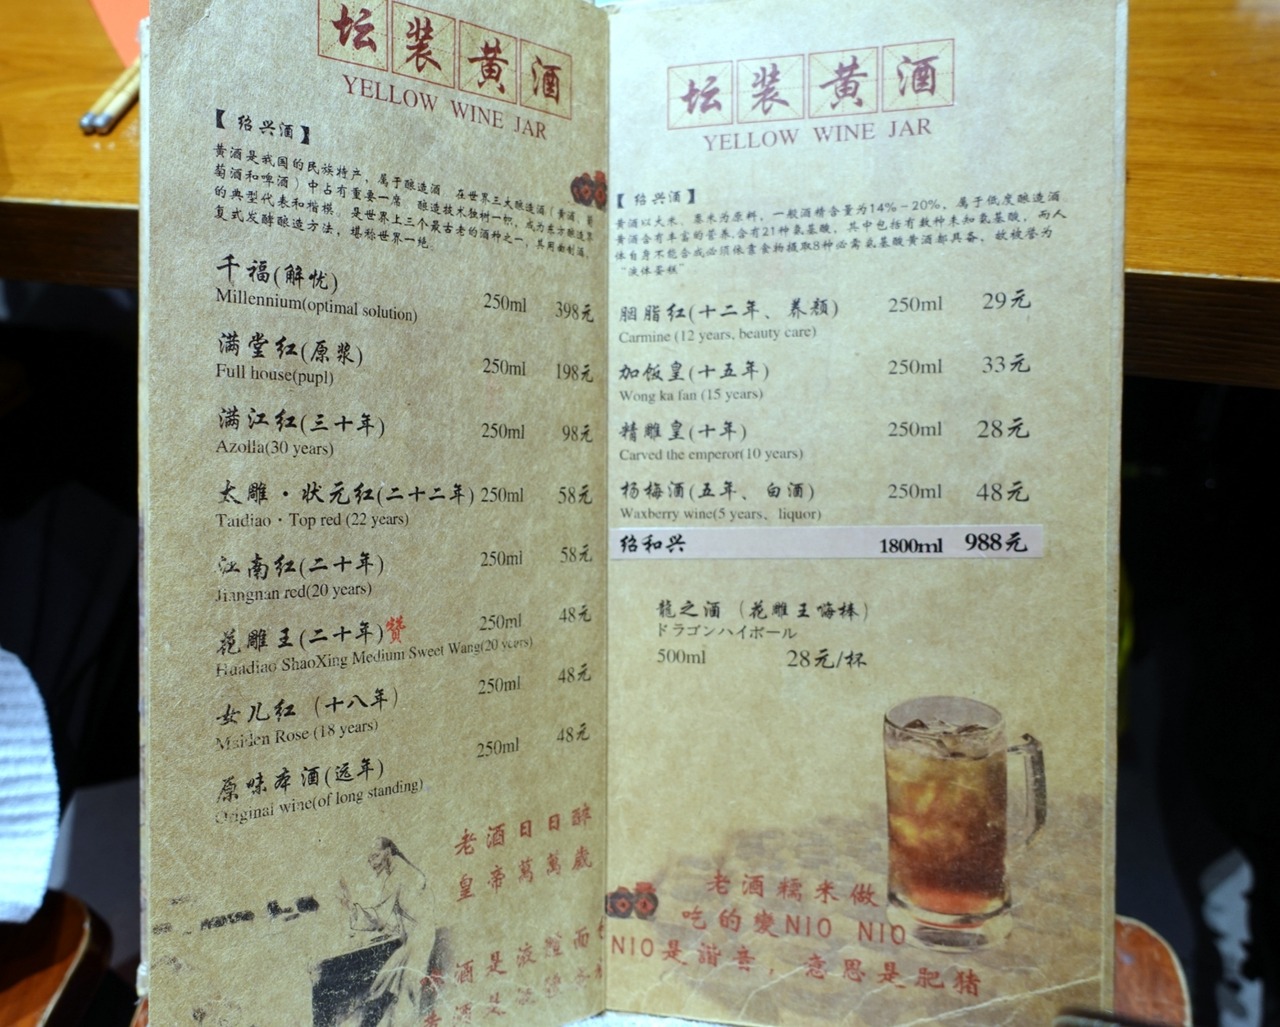 坛装黄酒
YELLOW WINE JAR
【绍兴酒】
黄酒是我国的民族特产，属于酿造酒，在世界三大酿造酒（黄酒、葡
萄酒和啤酒）中占有重要一席。酿造技术独树一帜，成为东方酿造界
的典型代表和楷模。是世界上三个最古老的酒种之一，其用曲制酒、
复式发酵酿造方法，堪称世界一绝。
千福(解忧) 250ml 398元
Millennium(optimal solution)
满堂红(原浆) 250ml 198元
Full house(pupl)
满江红(三十年) 250ml 98元
Azolla(30 years)
太雕·状元红(二十二年) 250ml 58元
Taidiao·Top red (22 years)
江南红(二十年) 250ml 58元
Jiangnan red(20 years)
花雕王(二十年)赞 250ml 48元
Huadiao ShaoXing Medium Sweet Wang(20 years)
女儿红（十八年） 250ml 48元
Maiden Rose (18 years)
原味本酒(远年) 250ml 48元
Original wine(of long standing)
老酒日日醉
皇帝萬萬歲
酒是液體面
坛装黄酒
YELLOW WINE JAR
【绍兴酒】
黄酒以大米、黍米为原料，一般酒精含量为14%-20%，属于低度酿造酒
黄酒含有丰富的营养,含有21种氨基酸，其中包括有数种未知氨基酸，而人
体自身不能合成必须依靠食物摄取8种必需氨基酸黄酒都具备，故被誉为
“液体蛋糕”
胭脂红(十二年、养颜) 250ml 29元
Carmine (12 years, beauty care)
加饭皇(十五年) 250ml 33元
Wong ka fan (15 years)
精雕皇(十年) 250ml 28元
Carved the emperor(10 years)
杨梅酒(五年、白酒) 250ml 48元
Waxberry wine(5 years、liquor)
绍和兴 1800ml 988元
龍之酒（花雕王嗨棒）
ドラゴンハイボール
500ml 28元/杯
老酒糯米做
吃的變NIO NIO
NIO是諧音，意思是肥猪